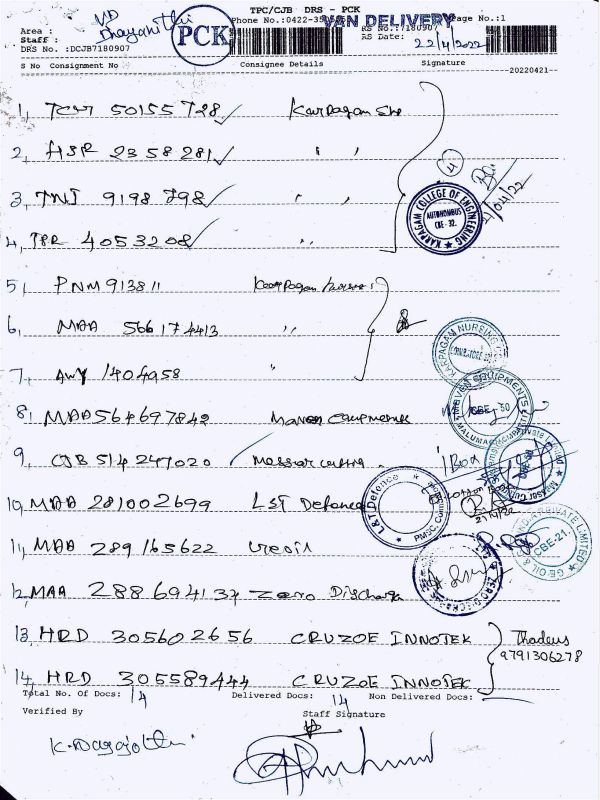 TPC/CJB DRS - PCK
VAN DELIVERY
Phone No.:0422-35
Page No.:1
PCK
Area :
Staff :
DRS No. :DCJB7180907
RS No.:7180907
RS Date: 22/4/2022
S No Consignment No Consignee Details Signature
20220421
1, TCR 50155728 Karpagam
2, HSR 2358281 " "
3, TNJ 9198798 " "
4, TPR 4053208 "
4
KARPAGAM COLLEGE OF ENGINEERING
AUTONOMOUS
CBE - 32.
5, PNM 913811 Karpagam
6, MAA 566174413 "
7, AWY 1404958 "
KARPAGAM NURSING
8, MAA 564697842 Maven Equipments
MAVEN EQUIPMENTS
CBE- 50
MALUMA
9, CJB 514247020 Messer Cutting 1 Box
Messer Cutting
10, MAA 281002699 L&T Defence
L&T Defence
PMSC
21/4/22
11, MAA 289165622 Geoil
GE OIL &
PRIVATE LIMITED
CBE-21.
12, MAA 288694137 Zero Discharge
ZERO DISCHARGE
13, HRD 305602656 CRUZOE INNOTEK Thadeus
9791306278
14, HRD 305589444 CRUZOE INNOTEK
Total No. Of Docs: 14 Delivered Docs: 14 Non Delivered Docs:
Verified By Staff Signature